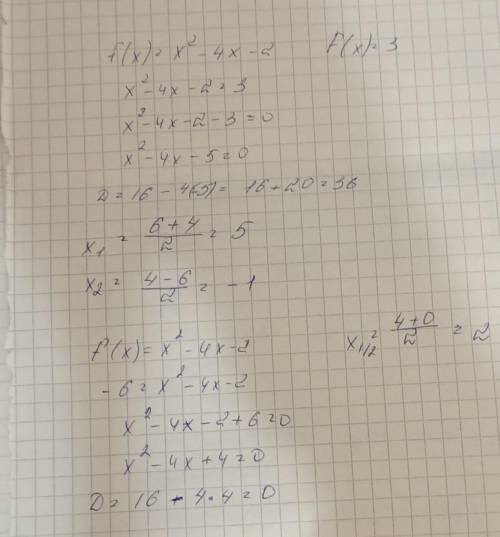 f(x) = x² - 4x - 2     f(x) = 3
x² - 4x - 2 = 3
x² - 4x - 2 - 3 = 0
x² - 4x - 5 = 0
D = 16 - 4(-5) = 16 + 20 = 36
x₁ = (6 + 4)/2 = 5
x₂ = (4 - 6)/2 = -1
f(x) = x² - 4x - 2
-6 = x² - 4x - 2
x² - 4x - 2 + 6 = 0
x² - 4x + 4 = 0
D = 16 - 4 · 4 = 0
x₁/₂ = (4 + 0)/2 = 2